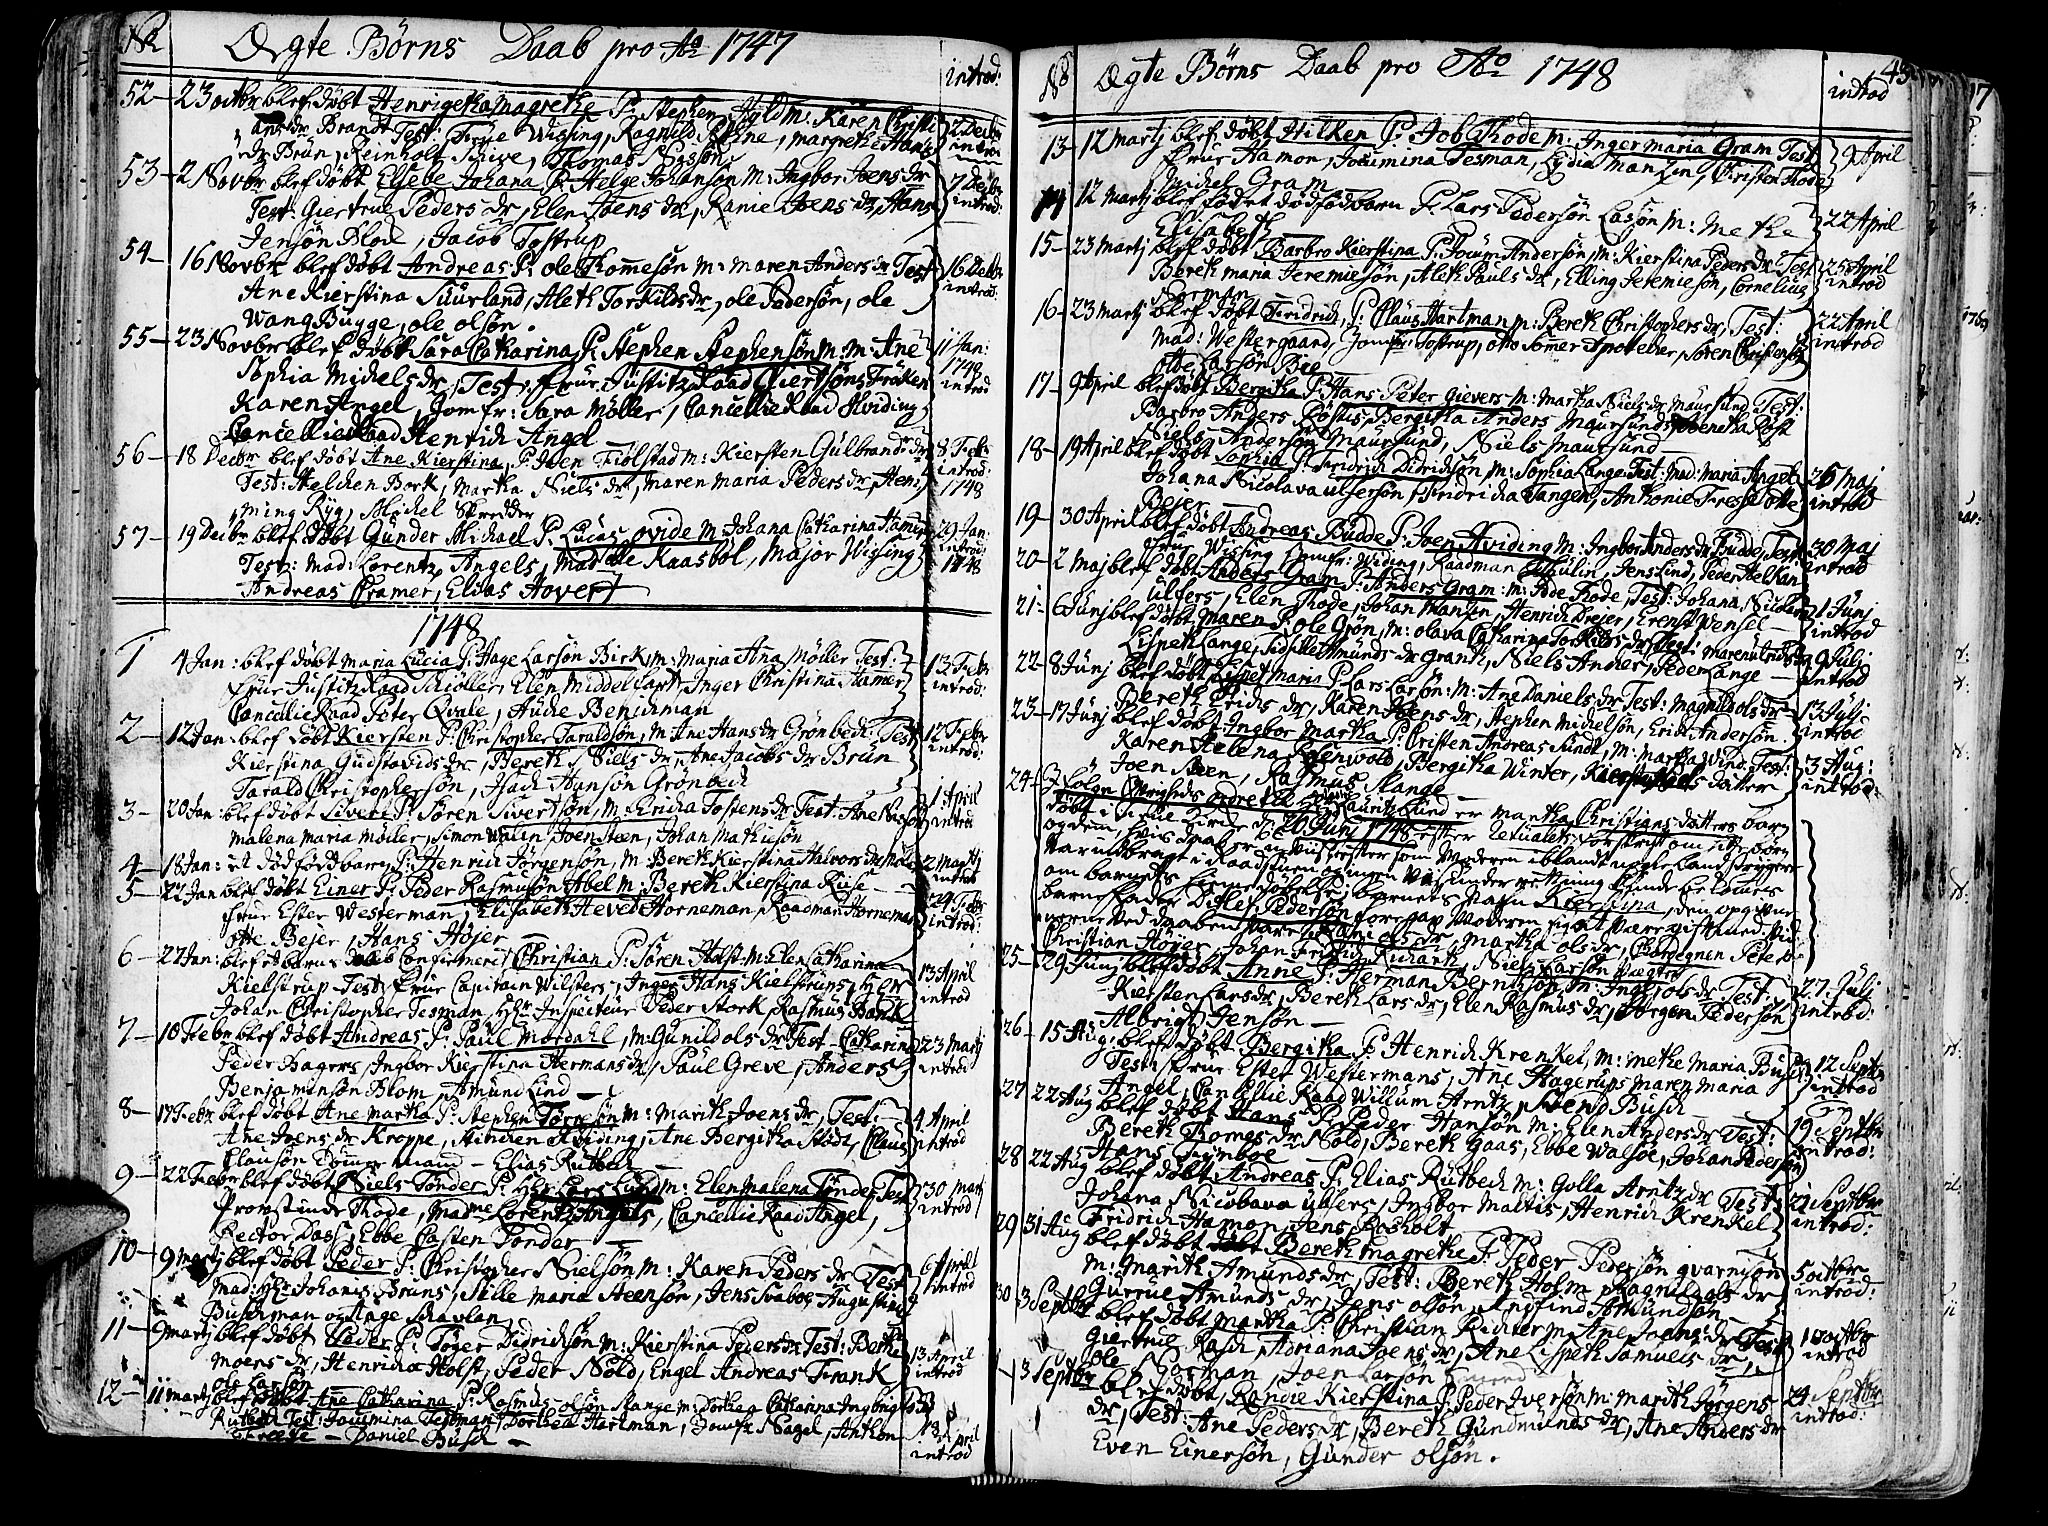 No Ægte Börns Daab pro Ao 1747
introd:
52 – 23 octbr blef döbt Henrigetha Magrethe P: Stephen Hyld M: Karen Christi
ans dr Brandt Test: Frue Wising, Ragnild Rene, Margrethe Hans
dr Brün, Reinholt Schive, Thomas
2 Decbr introd
53 – 2 Novbr blef döbt Elsebe Johana P: Helge Johansön M: Ingbor Joens dr
Test: Giertrue Peders dr, Elen Joens dr, Ranie Joens dr, Hans
Jensön Blod, Jacob Tostrup
7 Decbr introd:
54 – 16 Novbr blef döbt Andreas P: ole Thomesön M: maren Anders dr Test
Ane Kierstina Suurland, Aleth Torkilds dr, ole Pedersön, ole
Wang Bugge, ole olsön.
16 Decbr introd:
55 – 23 Novbr blef döbt Sara Catharina P: Stephen Stephensön M: Ane
Sophia Michels dr, Test: Frue Justitz Raad Fröken
Karen Angel, Jomfr: Sara Möller, Cancellie Raad Hviding
Cancellie Raad Henrich Angel
11 Jan: 1748 introd
56 – 18 Decbr blef döbt Ane Kierstina, P: Joen Fiölstad M: Kiersten Gulbrands dr
Test: Melchen Bork, Martha Niels dr, maren maria Peders dr, Hen
ming Ryg, Michel Skredder
8 Febr introd: 1748
57 – 19 Decbr blef döbt Gunder Michael P: Lucas ovide M: Johana Catharina Hamer
Test: Mad: Lorentz Angels, Mad Kaasböl, Major Wising
Andreas Cramer, Elias Hovert
29 Jan: introd: 1748
1748
1 4 Jan: blef döbt Maria Lucia P: Hage Larsön Birk, M: Maria Ana Möller Test:
Frue Justitz Raad Schiöller, Elen Middelfart, Inger Christina Hamer
Cancellie Raad Peter Qvale, Hüche Benichman
13 Febr introd:
2 – 12 Jan: blef döbt Kiersten P: Christopher Taraldsön, M: Ane Hans dr Grönbech: Test
Kierstina Gudstavids dr, Bereth Niels dr, Ane Jacobs dr Brün
Tarald Christophersön, Hansön Grönbech
12 Febr introd:
3 – 20 Jan: blef döbt Sivert P: Sören Sivertsön, M: Ericha Tostens dr Test: Ane
malena maria möller, Simon Joen Steen, Johan Mathiesön
1 April introd
4 – 18 Jan: et dödföd barn P: Henrich Jörgensön, M: Bereth Kierstina Halvors dr
2 Martj introd
5 – 22 Jan blef döbt Einer P: Peder Rasmusön Abel M: Bereth Kierstina Ruse –
Frue Ester Westerman, Elisabeth Hevet Horneman, Raadman Horneman
otte Bejer, Hans Höjer –
24 Febr introd:
6 – 27 Jan: blef et barns Daab Confirmeret Christian P: Sören Holst M: Elen Catharina
Kielstrup Test: Frue Capitain Wilsters, Inger Hans Kielstrups, Hr
Johan Christopher Tesman, Hr Inspecteur Peder Stork, Rasmus Bank
13 April introd
7 – 10 Febr blef döbt Andreas P: Paul Mordahl, M: Gunild ols dr Test – Catharina
Peder Hagers, Ingbor Kierstina Hermans dr, Paul Greve, Anders
Benjaminsön Blom, Amund Lind –
23 Martj introd
8 – 17 Febr blef döbt Ane Martha P: Stephen Törresön M: Marith Joens dr, Test: –
Ane Joens dr Kroppe, Hviding, Ane Bergitha Stöth, Claus
Clausön Tömmermand – Elias Rutbech –
4 April introd
9 – 22 Febr blef döbt Niels Tönder P: Hr Lars Lund M: Elen Malena Tönder Test
Provstinde Thode, Madme Lorentz Angels, Cancellie Raad Angel,
Rector Dass, Ebbe Casten Tonder –
30 Martj introd
10 – 9 martj blef döbt Peder P: Christopher Nielsön M: Karen Peders dr Test
Mad: Hr Johanis Bruns, Sille maria Steensön, Jens Svaboe, Augustinus
Buschman og Ange Schavlan –
6 April introd
11 – 9 martj blef döbt Peder P: Töger Didrichsön M: Kierstina Peders dr Test: Berthe
Moens dr, Henricha Holst, Peder Nold, Engel Andreas Frank
ole Larsön
13 April introd
12 – 11 martj blef döbt Ane Catharina P: Rasmus olsön Stange M: Dorthea Catharina Ingbrigts dr
Rutbech Test: Jacumina Testman, Dorthea Hartman, Jomfr Nagel, Anthon
Freste – Daniel Busch –
13 April introd
No Ægte Börns Daab pro Ao 1748
introd
13 – 12 martj blef döbt Hilken P: Job Thode M: Inger maria Gram Test
Frue Hamon, Jocumina Tesman, Lydia Manzin, Christen Thode
Michel Gram
9 April
14 12 martj blef födet dödfödbarn P: Lars Pedersön Casön M: Methe
Elisabeth
22 April
15 – 23 martj blef döbt Barbro Kierstina P: Jocum Andersön, M: Kierstina Peders dr Test
Bereth maria Jeremiesön, Aleth Pauls dr, Elling Jeremiesön, Cornelius
Norman
25 April introd
16 – 23 martj blef döbt Fridrich, P: Claus Hartman M: Bereth Christophers dr, Test:
Mad: Westergaard, Jomfr: Tostrup, otto Somer Apotecker, Sören Christensön
otte Larsön Bie –
22 April introd
17 – 9 April blef döbt Bergitha P: Hans Peter Gievers M: Martha Niels dr Maursund, Test:
Barbro Anders Röstis, Bergitha Anders Maursunds, Benetha Röst
Niels Andersön Maursund, Niels Maursund
18 – 19 April blef döbt Sophia P: Fridrich Didrichsön M: Sophia Lange Test: Mad: Maria Angel
Johana Nicolava ulfersön, Hendricha Tangen, Anthonie Fresse, otte
Bejer –
26 Maj introd
19 – 30 April blef döbt Andreas Budde P: Joen Hviding M: Ingbor Anders dr Budde, Test:
Frue Wising, Jomfr: Widing, Raadman Thulin, Jens Lind, Peder Helkan
30 Maj introd
20 – 2 Maj blef döbt Anders Gram P: Anders Gram M: Ide Thode, Test: Johana Nicolava
ulfers, Elen Thode, Johan Manzin, Henrich Drejer, Ernst Wensel –
1 Junj introd
21 – 6 Junj blef döbt Maren P: ole Grön, M: olava Catharina Torkilds dr Test: Maren
Lispeth Lange, Sidselle Amunds dr Granth, Niels Ancher, Peder Lange –
9 Julj introd
22 – 8 Junj blef döbt Lispet Maria P: Lars Larsön: M: Ane Daniels dr Test: Magnild ols dr
Bereth Erichs dr, Karen Joens dr, Stephen Michelsön, Erich Andersön.
13 Julj introd
23 – 17 Junj blef döbt Ingbor Martha P: Christen Andreas Sundt, M: Martha Wind. Test:
Karen Helena Ehrenvold, Bergitha Winter,
Joen Steen, Rasmus Stange –
3 Aug: introd
24 Ifölge Övrigheds ordre til Lauritz Lund – er Martha Christians datters barn
döbt i Frue Kirke d. 20 Junj 1748 – efter Ritualets Forskrift om Hitte börn
og dem, hvis daab er uviss, efter som Moderen iblandt nogle Landstrygere
var indbragt i Raadstuen og ingen vis underretning kunde bekomes
om barnets hjemmedöbelse; barnets Nafn Kierstina, dem opgivne
barne Fader Ditlef Pedersön foregaf Moderen sig at være gift med. Vid-
nerne ved daaben vare: dr, Martha ols dr, Chordegnen Peter
Christian Höyer, Johan Fridrich Richard, Niels Larsön vægter
25 – 29 Junj blef döbt Anne P: Herman Berntsön, M: Inger ols dr Test:
Kiersten Lars dr, Bereth Lars dr, Elen Rasmus dr, Jörgen Pedersön
Albrigt Jensön –
27 Julj introd:
26 – 15 Aug: blef döbt Bergitha P: Henrich Krenkel, M: Methe Maria Busch
Test: Frue Ester Westermans, Ane Hagerups maren maria
Angel, Cancellie Raad Willum Arntz, Svend Busch
12 Septbr introd
27 22 Aug blef döbt Hans P: Peder Hansön M: Elen Anders dr Test:
Bereth Bornes dr Nold, Bereth Gaas, Ebbe Walsöe, Johan Pedersön
Hans Trönboe
19 Septbr introd:
28 22 Aug blef döbt Andreas P: Elias Rutbech M: Golla Arntz dr Test
Johana Nicolava ulfers, Ingbor Maltis, Henrich Krenkel
Fridrich Hamon, Jens Rosholt
21 Septbr introd:
29 31 Aug blef döbt Bereth magrethe P: Peder Pedersön qvarnsön
M: Marith Amunds dr, Test: Bereth Holm, Ragnild ols dr
Gurrue Amunds dr, Jens olsön, Angfind Amundsön
5 octbr introd:
30 3 Septbr blef döbt Martha P: Christian Richter M: Ane Joens dr Test
Giertrue Rasch, Adriana Joens dr, Ane Lispeth Samuels dr,
ole Norman, Joen Larsön
10 octbr introd
3 Septbr blef döbt, Randie Kierstina P: Peder Iversön M: Marith Jörgens
dr, Test: Ane Peders dr, Bereth Gundmunds dr, Ane Anders dr
Even Einersön, Gunder olsön.
24 Septbr introd: